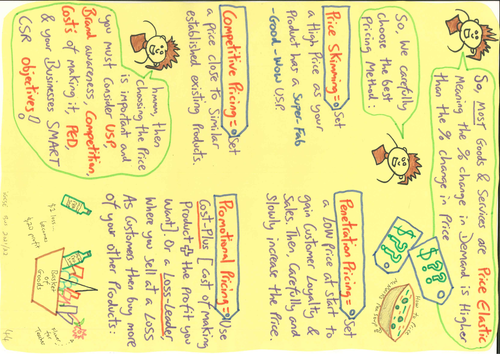 So, MOST Goods & Services are Price Elastic
Meaning the % change in Demand is Higher
than the % change in Price
So, We carefully
choose the best
Pricing Method:
$??
$??
Price Skimming = Set
a High Price as your
Product has a Super-Fab
-Good-Wow USP.
Penetration Pricing = Set
a Low Price at Start to
gain Customer Loyalty &
Sales. Then, Carefully and
Slowly increase the Price.
Competitive Pricing = Set
a Price close to Similar
established existing Products.
Promotional Pricing = Use
Cost-Plus [Cost of making
Product + the Profit you
Want] Or a Loss-Leader,
Where you Sell at a Loss
As Customers then buy more
of your other Products:
hmmm then
Choosing the Price
is important and
you must Consider USP,
Brand awareness, Competition,
Costs of making it, PED,
& your Businesses SMART
CSR Objectives!
$2 loss
becomes
$20 profit
Basket
of
Goods
4/4